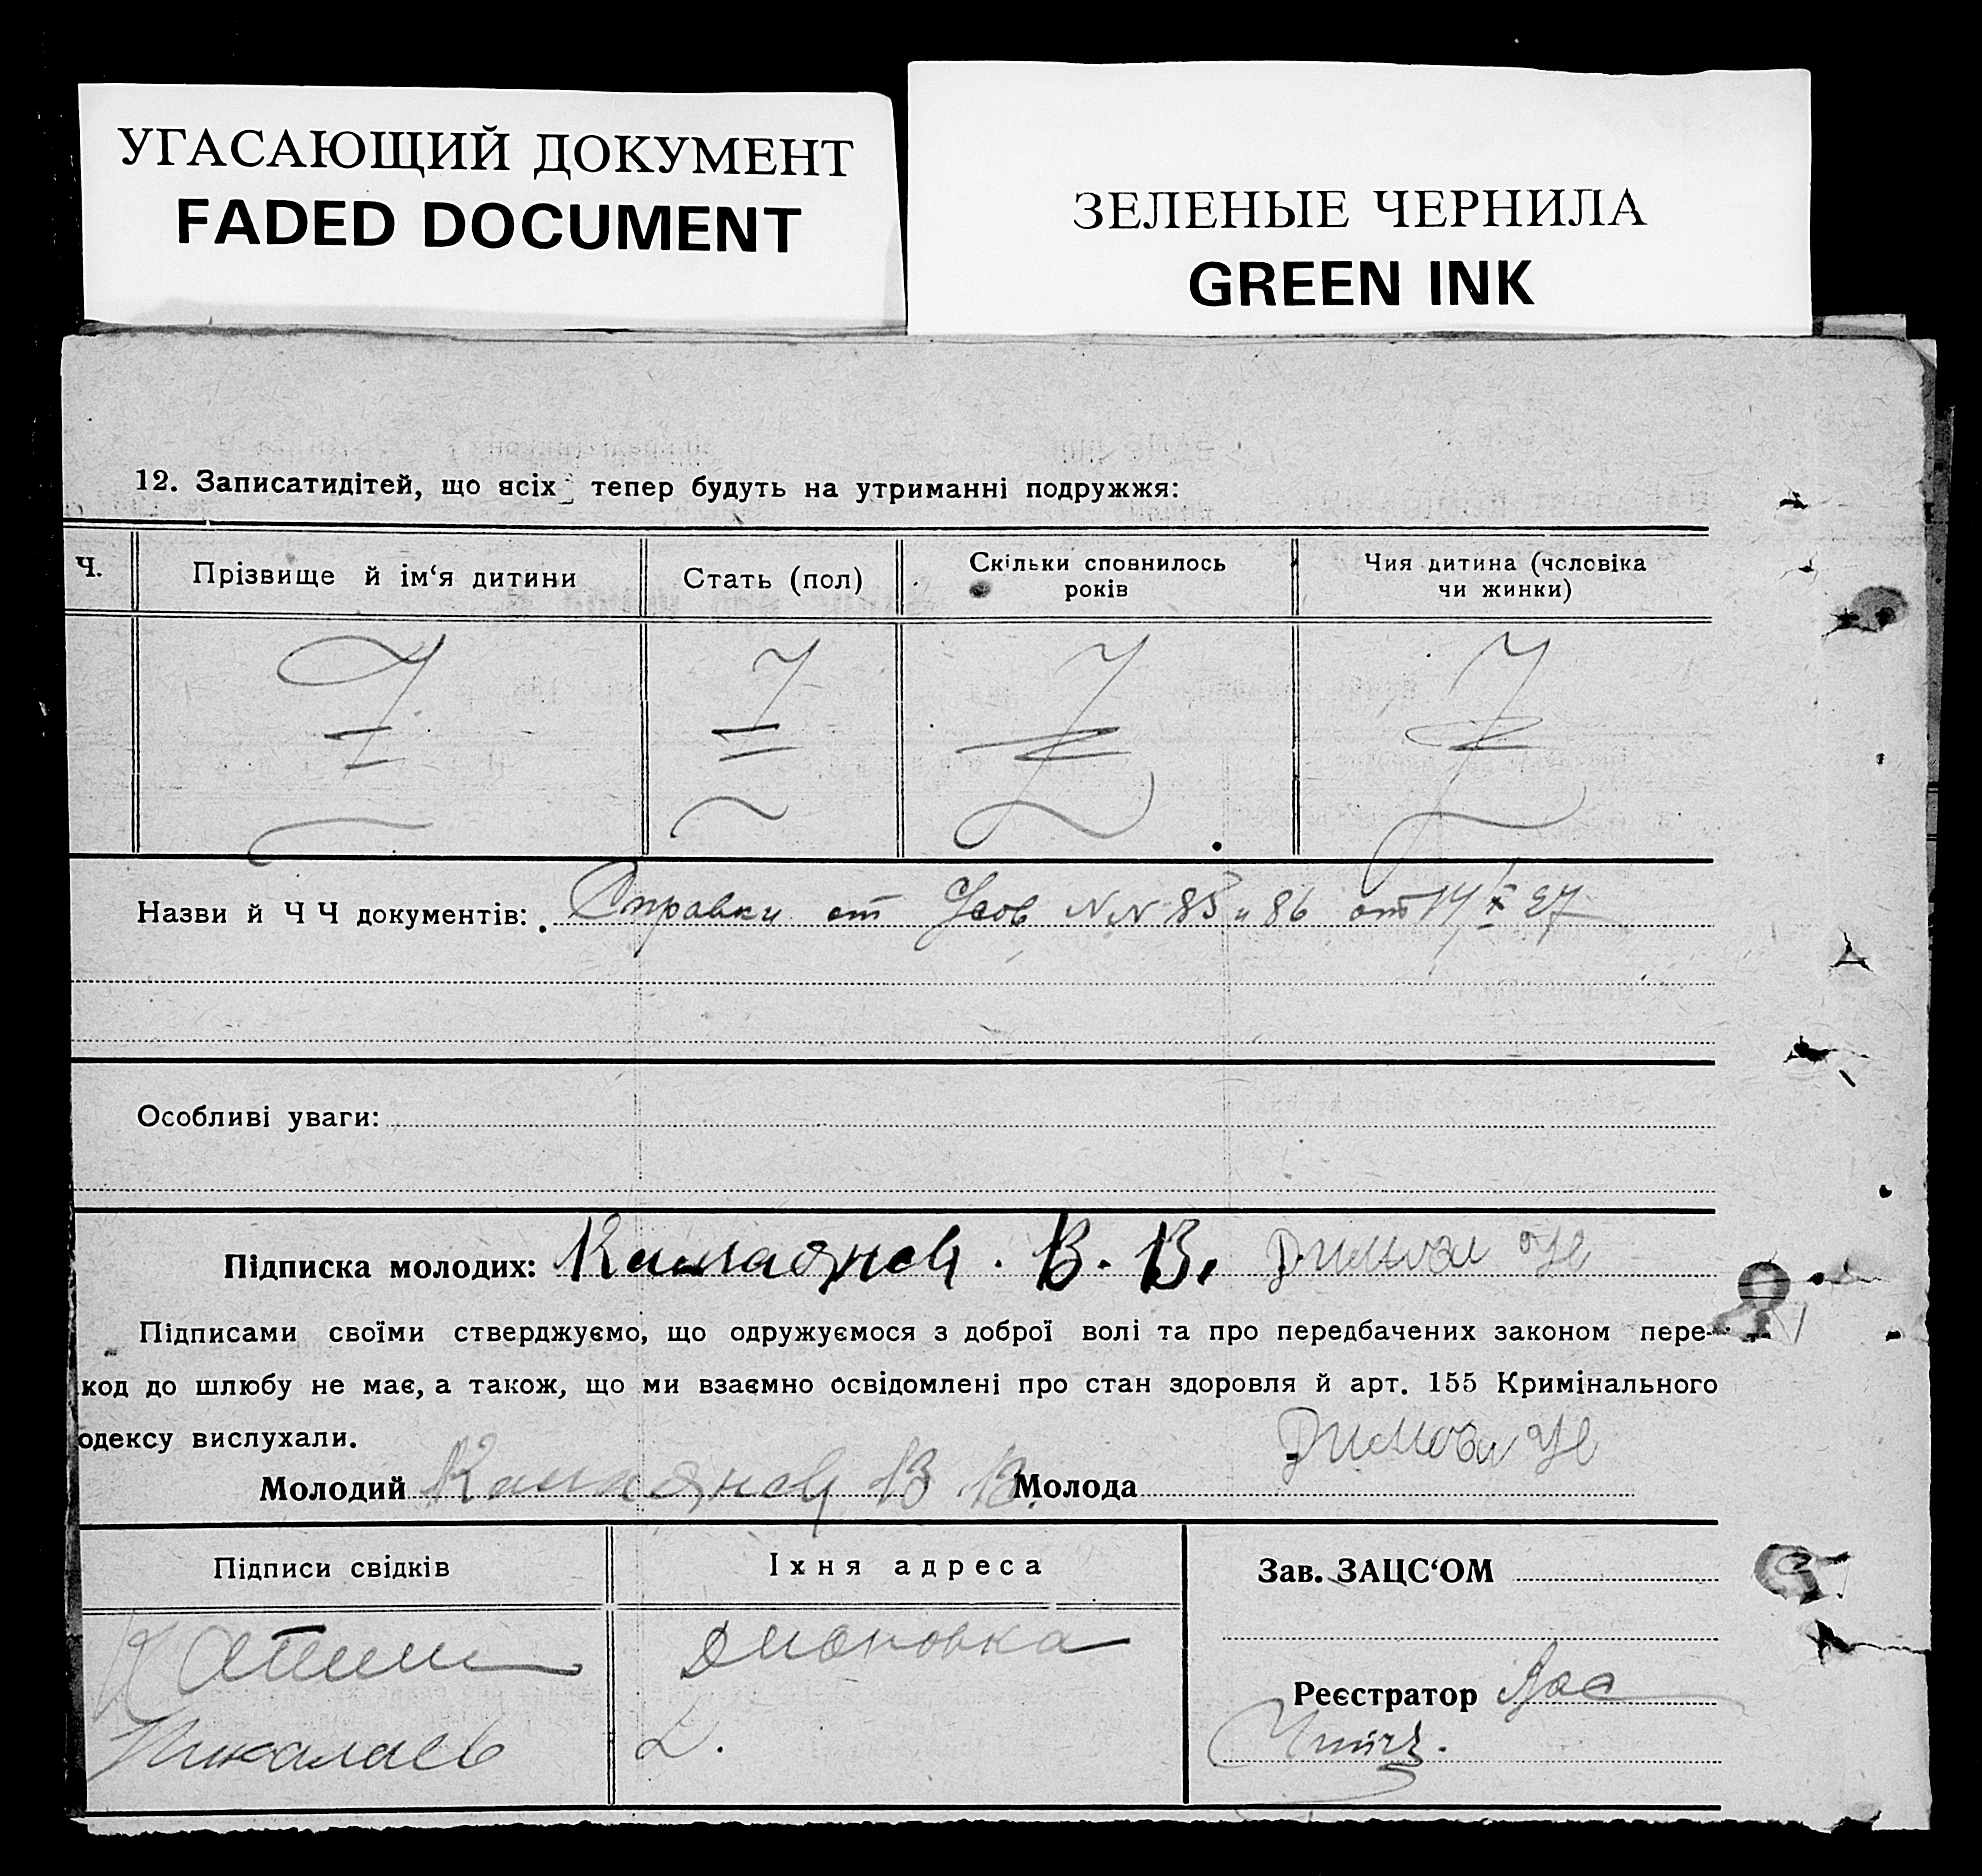 УГАСАЮЩИЙ ДОКУМЕНТ
FADED DOCUMENT
ЗЕЛЕНЫЕ ЧЕРНИЛА
GREEN INK
12. Записатидітей, що всіх тепер будуть на утриманні подружжя:
Ч.
Прізвище й ім‘я дитини
Стать (пол)
Скільки сповнилось
років
Чия дитина (чсловіка
чи жинки)
Назви й ЧЧ документів: Справки от NN 85 и 86 от 14/X 27
Особливі уваги:
Підписка молодих: В. В.
Підписами своїми стверджуємо, що одружуємося з доброї волі та про передбачених законом пере-
код до шлюбу не має, а також, що ми взаємно освідомлені про стан здоровля й арт. 155 Кримінального
одексу вислухали.
Молодий В В. Молода
Підписи свідків
Іхня адреса
Зав. ЗАЦС‘ОМ
Реєстратор